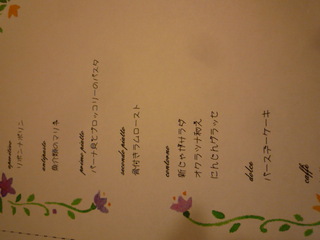 aperitivo
リモンチポリン
antipasto
魚介類のマリネ
primo piatto
バーナ貝とブロッコリーのパスタ
secondo piatto
骨付きラムロースト
contorno
新じゃがサラダ
オクラツナ和え
にんじんグラッセ
dolce
バースデーケーキ
caffè